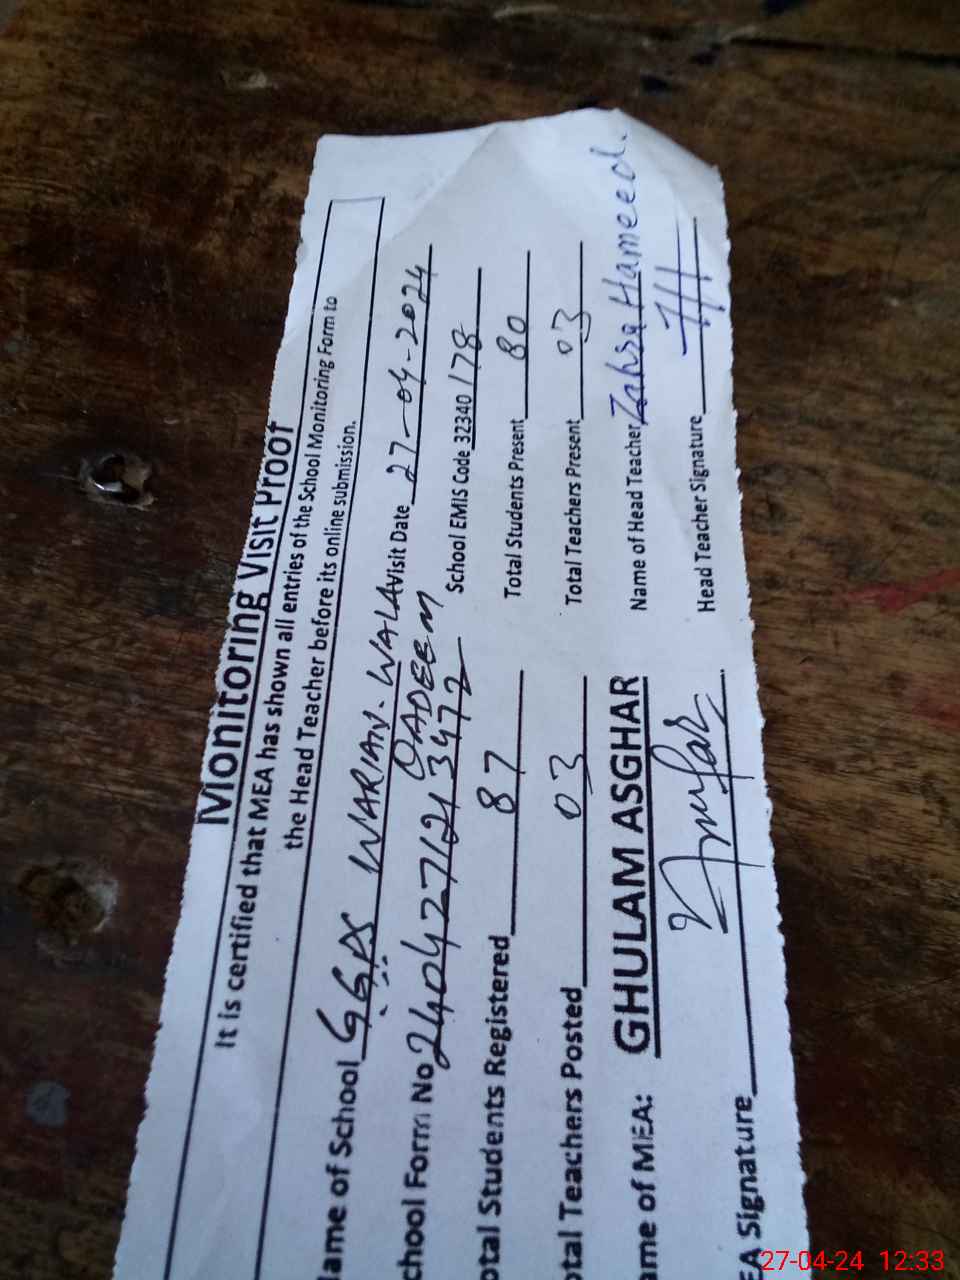 Monitoring Visit Proof
It is certified that MEA has shown all entries of the School Monitoring Form to
the Head Teacher before its online submission.
ame of School GGPS WARIAN-WALA Visit Date 27-04-2024
QADEEM
chool Form No 24042712134 72 School EMIS Code 32340178
otal Students Registered 87 Total Students Present 80
otal Teachers Posted 03 Total Teachers Present 03
ame of MEA: GHULAM ASGHAR Name of Head Teacher Zahra Hameed.
EA Signature Head Teacher Signature
27-04-24 12:33